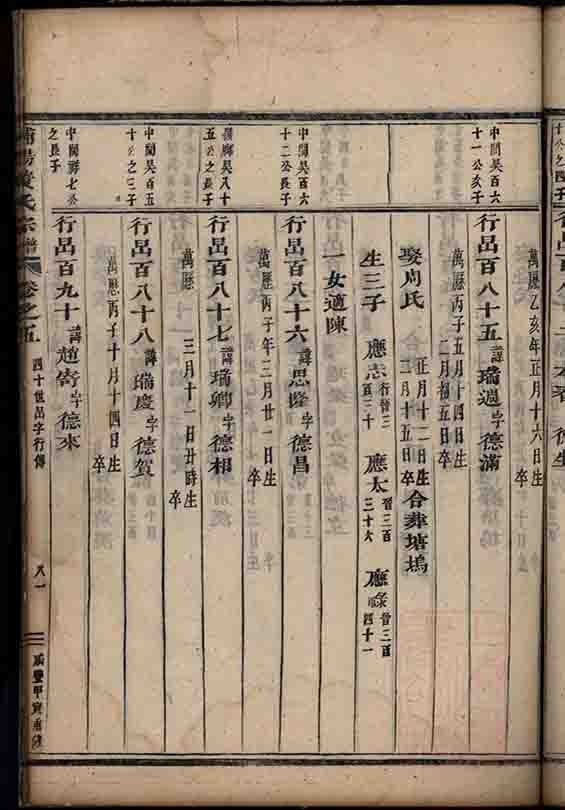 萬歷乙亥年正月十六日生 卒
中閫吳百六十一公次子
行呂百八十五 諱瑞週 字德滿
萬歷丙子五月十四日生
二月初五日卒
娶周氏
正月十二日生
三月十五日卒
合葬塘塢
生三子 應志 行晉三百三十 應太 晉三百三十六 應祿 晉三百四十一
一女適陳
中閫吳百六十二公長子
行呂百八十六 諱思隆 字德昌
萬歷丙子年三月廿一日生 卒
五公之長子
行呂百八十七 諱瑞卿 字德相
萬歷 三月十一日丑時生 卒
中閫吳百五十公之三子
行呂百八十八 諱瑞慶 字德賀
萬歷丙子十月十四日生 卒
七公之長子
行呂百九十 諱趙 字德來
氏宗譜 卷之五 四十世呂字行傳 八一 咸豐甲寅重修